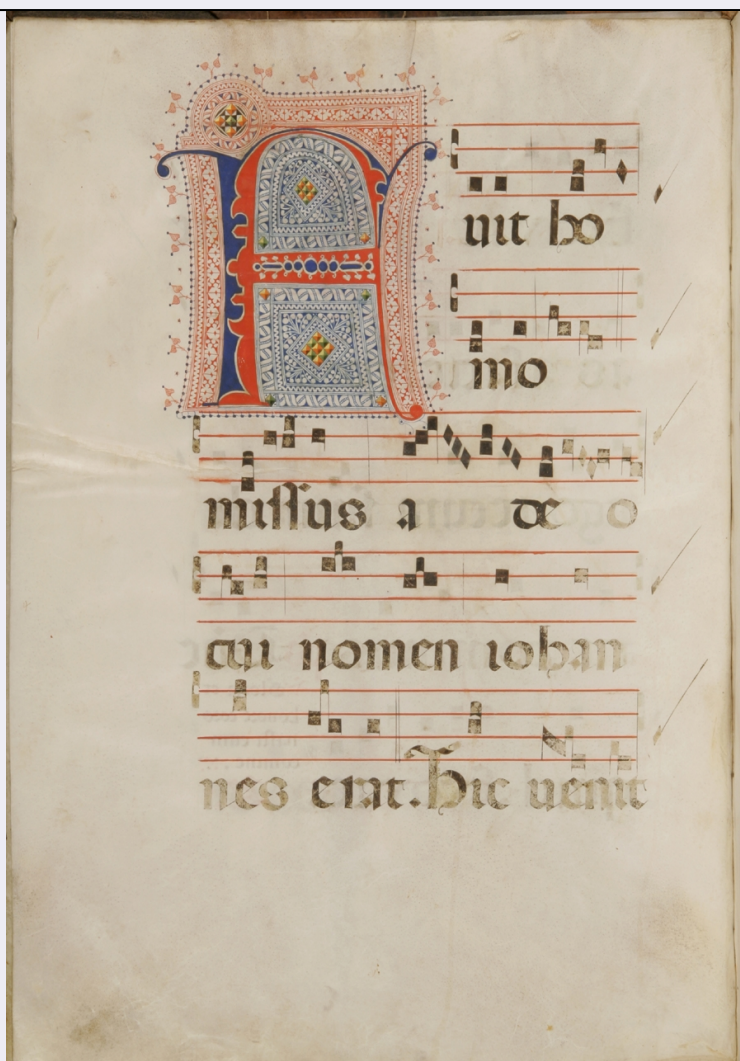 Fuit ho
mo
missus a de o
cui nomen iohan
nes erat. Hic uenit